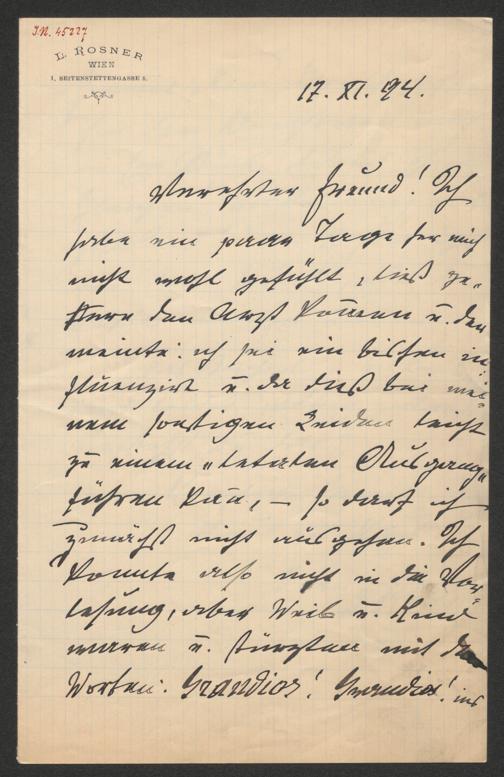 I.N. 45227
L. ROSNER
WIEN
I. SEITENSTETTENGASSE 5.
17. XI. 94.
Verehrter Freund! Ich
habe ein paar Tage her mich
nicht wohl gefühlt, ließ ge-
stern den Arzt kom̅en u. der
meinte: ich sei ein bischen in-
fluenzirt u. da dieß bei mei-
nem sonstigen Leiden leicht
zu einem „letalen Ausgang“
führen kan̅, – so darf ich
zunächst nicht ausgehen. Ich
konnte also nicht in die Vor-
lesung, aber Weib u. Kind
waren u. stürzten mit den
Worten: Grandios! Grandios! ins